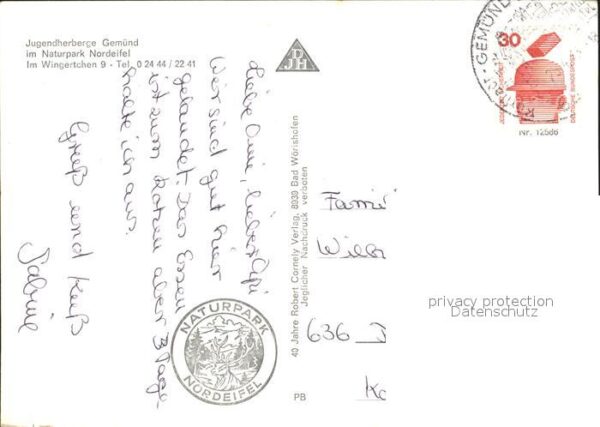 Jugendherberge Gemünd
im Naturpark Nordeifel
Im Wingertchen 9 - Tel. 0 24 44 / 22 41
DJH
Liebe Omi, lieber Opi
Wir sind gut hier
gelandet. Das Essen
ist zum Kotzen aber 3 Tage
halte ich aus.
Gruß und Kuß
Sabine
NATURPARK
NORDEIFEL
40 Jahre Robert Cornely Verlag, 8939 Bad Wörishofen
Jeglicher Nachdruck verboten
PB
GEMÜND
30
DEUTSCHE BUNDESPOST
Nr. 12586
Fami
Will
636
Ko
privacy protection
Datenschutz